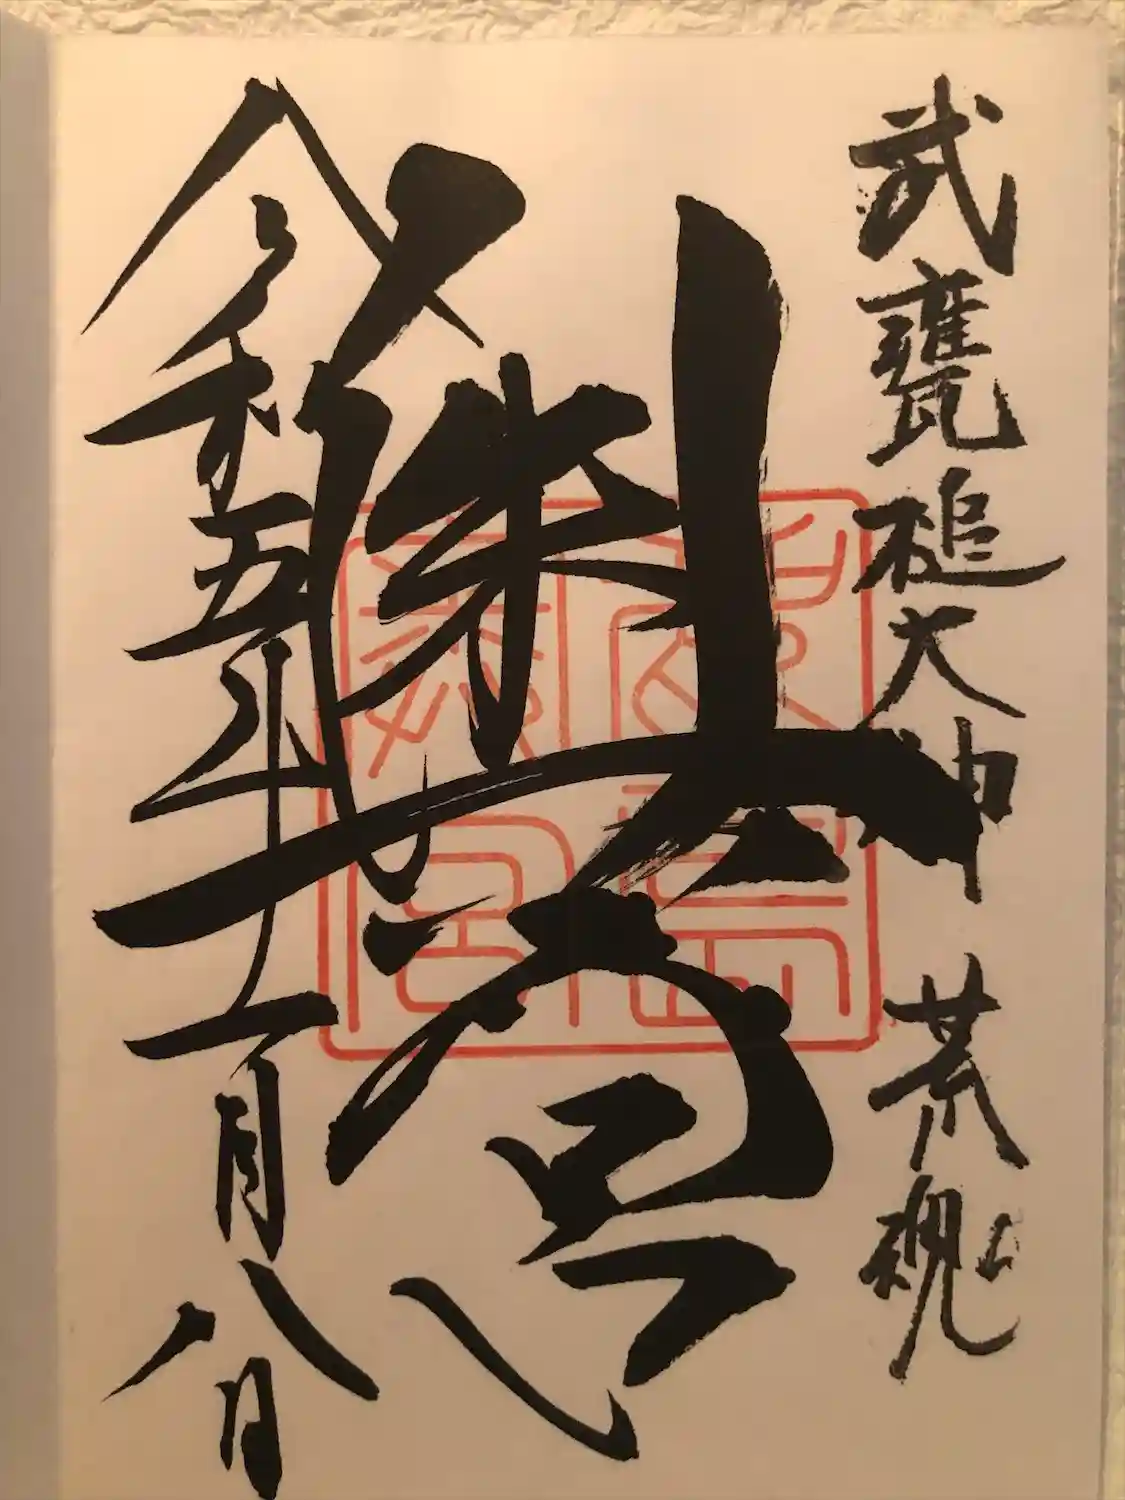 武甕槌大神 荒魂
奥宮
令和五年十一月八日